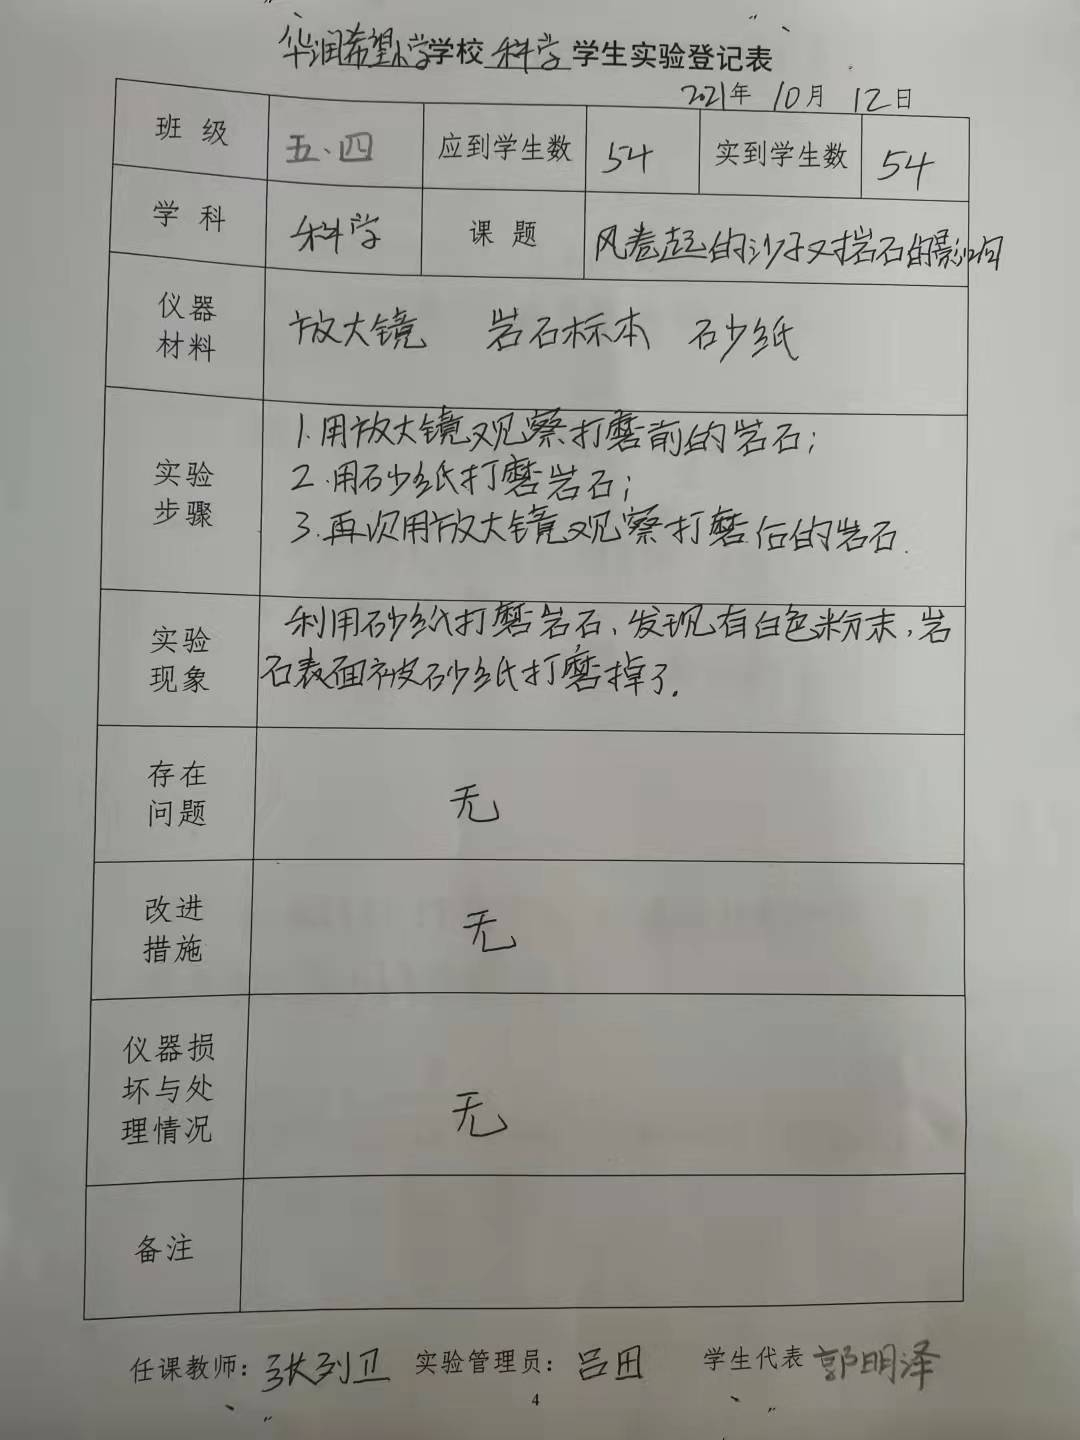 华润希望小学学校 科学 学生实验登记表
2021年 10月 12日
班 级 五、四 应到学生数 54 实到学生数 54
学 科 科学 课 题 风卷起的沙子对岩石的影响
仪器
材料
放大镜 岩石标本 石少纸
实验
步骤
1.用放大镜观察打磨前的岩石;
2.用砂纸打磨岩石;
3.再次用放大镜观察打磨后的岩石.
实验
现象
利用砂纸打磨岩石、发现有白色粉末,岩
石表面被砂纸打磨掉了.
存在
问题
无
改进
措施
无
仪器损
坏与处
理情况
无
备注
任课教师: 张列卫 实验管理员: 吕田 学生代表 郭明泽
4